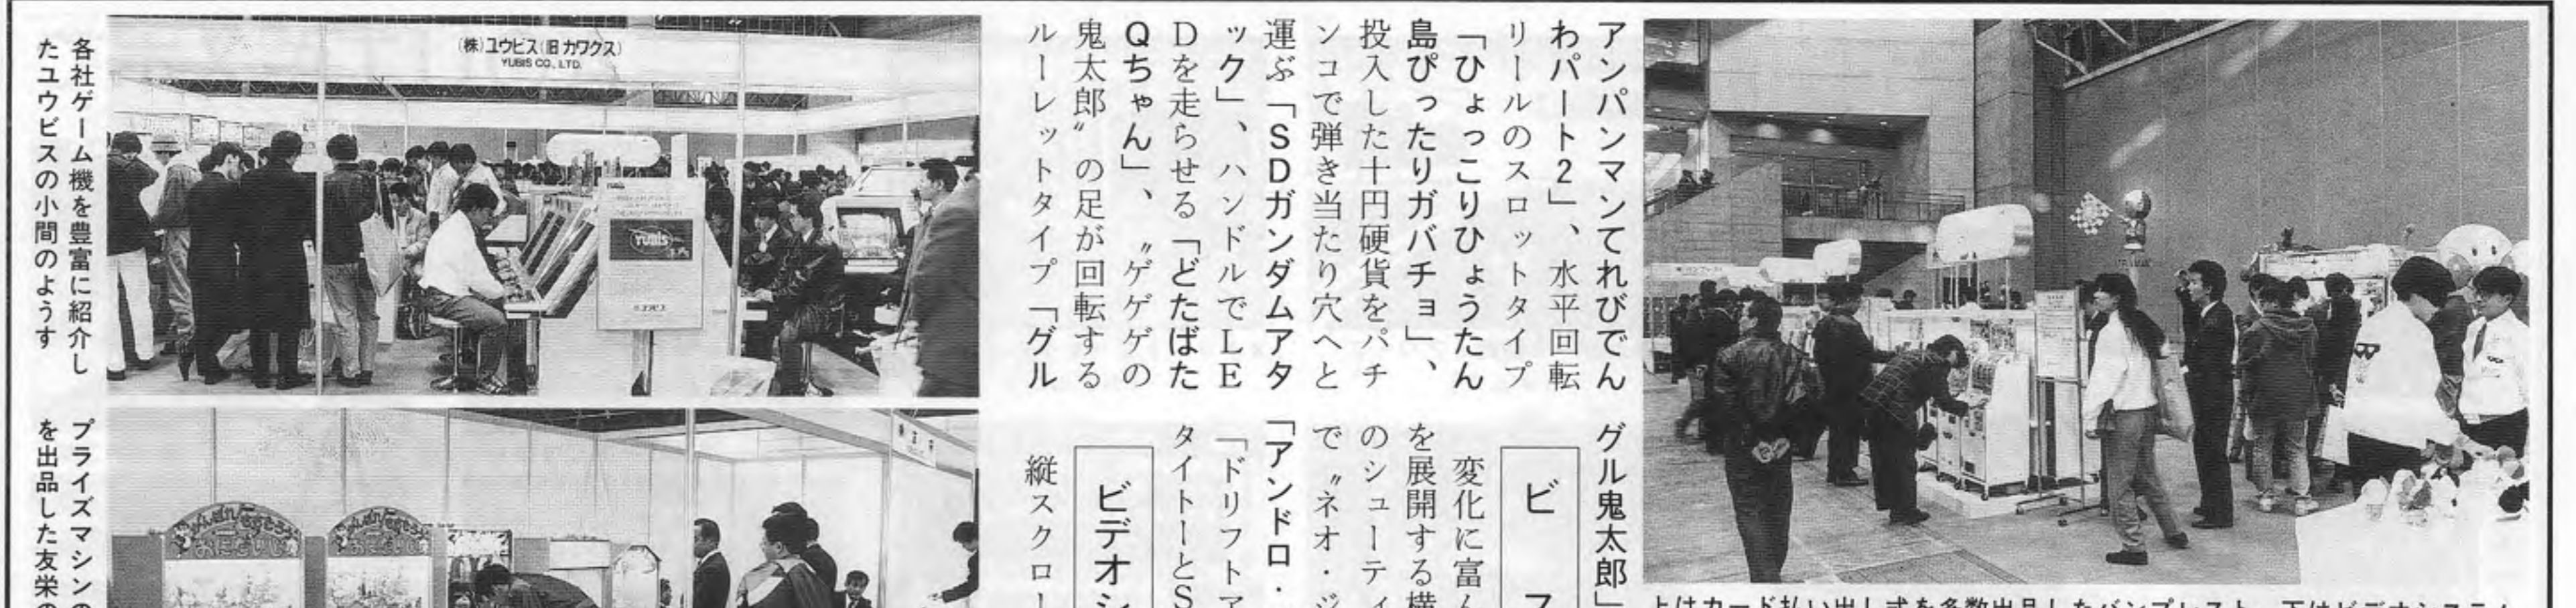 アンパンマンてれびでん
わパート2」、水平回転
リールのスロットタイプ
「ひょっこりひょうたん
島ぴったりガバチョ」、
投入した十円硬貨をパチ
ンコで弾き当たり穴へと
運ぶ「SDガンダムアタ
ック」、ハンドルでLE
Dを走らせる「どたばた
Qちゃん」、〝ゲゲゲの
鬼太郎〟の足が回転する
ルーレットタイプ「グル
グル鬼太郎」
ビ ス
変化に富ん
を展開する横
のシューティ
で〝ネオ・ジ
「アンドロ・
「ドリフトア
タイトーとS
ビデオシ
縦スクロー
(株)ユウビス(旧 カワクス)
YUBIS CO., LTD.
YUBIS
各社ゲーム機を豊富に紹介し
たユウビスの小間のようす
プライズマシンの
を出品した友栄の
上はカード払い出し式を多数出品したバンプレスト、下はビデオシステム